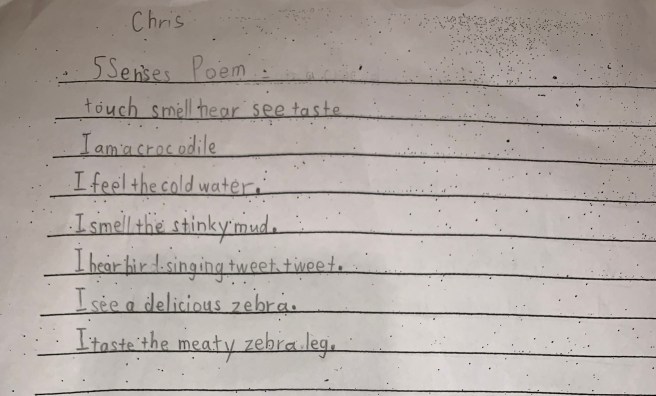 Chris
5 Senses Poem
touch smell hear see taste
I am a crocodile
I feel the cold water.
I smell the stinky mud.
I hear bird singing tweet tweet.
I see a delicious zebra.
I taste the meaty zebra leg.